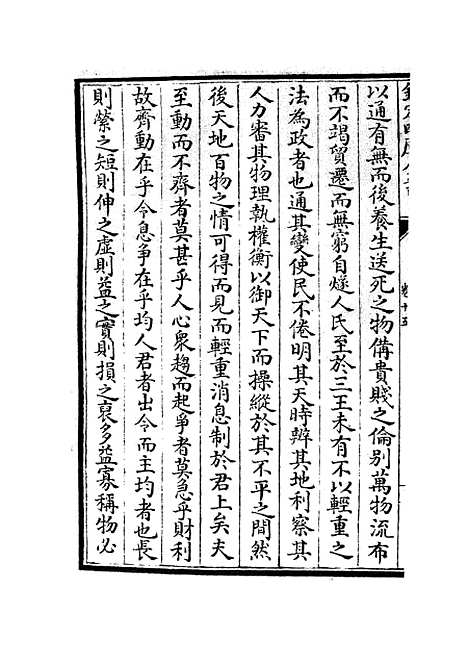 以通有無而後養生送死之物備貴賤之倫別萬物流布
而不竭貿遷而無窮自燧人氏至於三王未有不以輕重之
法為政者也通其變使民不倦明其天時辨其地利察其
人力審其物理執權衡以御天下而操縱於其不平之間然
後天地百物之情可得而見而輕重消息制於君上矣夫
至動而不齊者莫甚乎人心衆趨而起爭者莫急乎財利
故齊動在乎令息爭在乎均人君者出令而主均者也長
則縈之短則伸之虛則益之實則損之裒多益寡稱物必